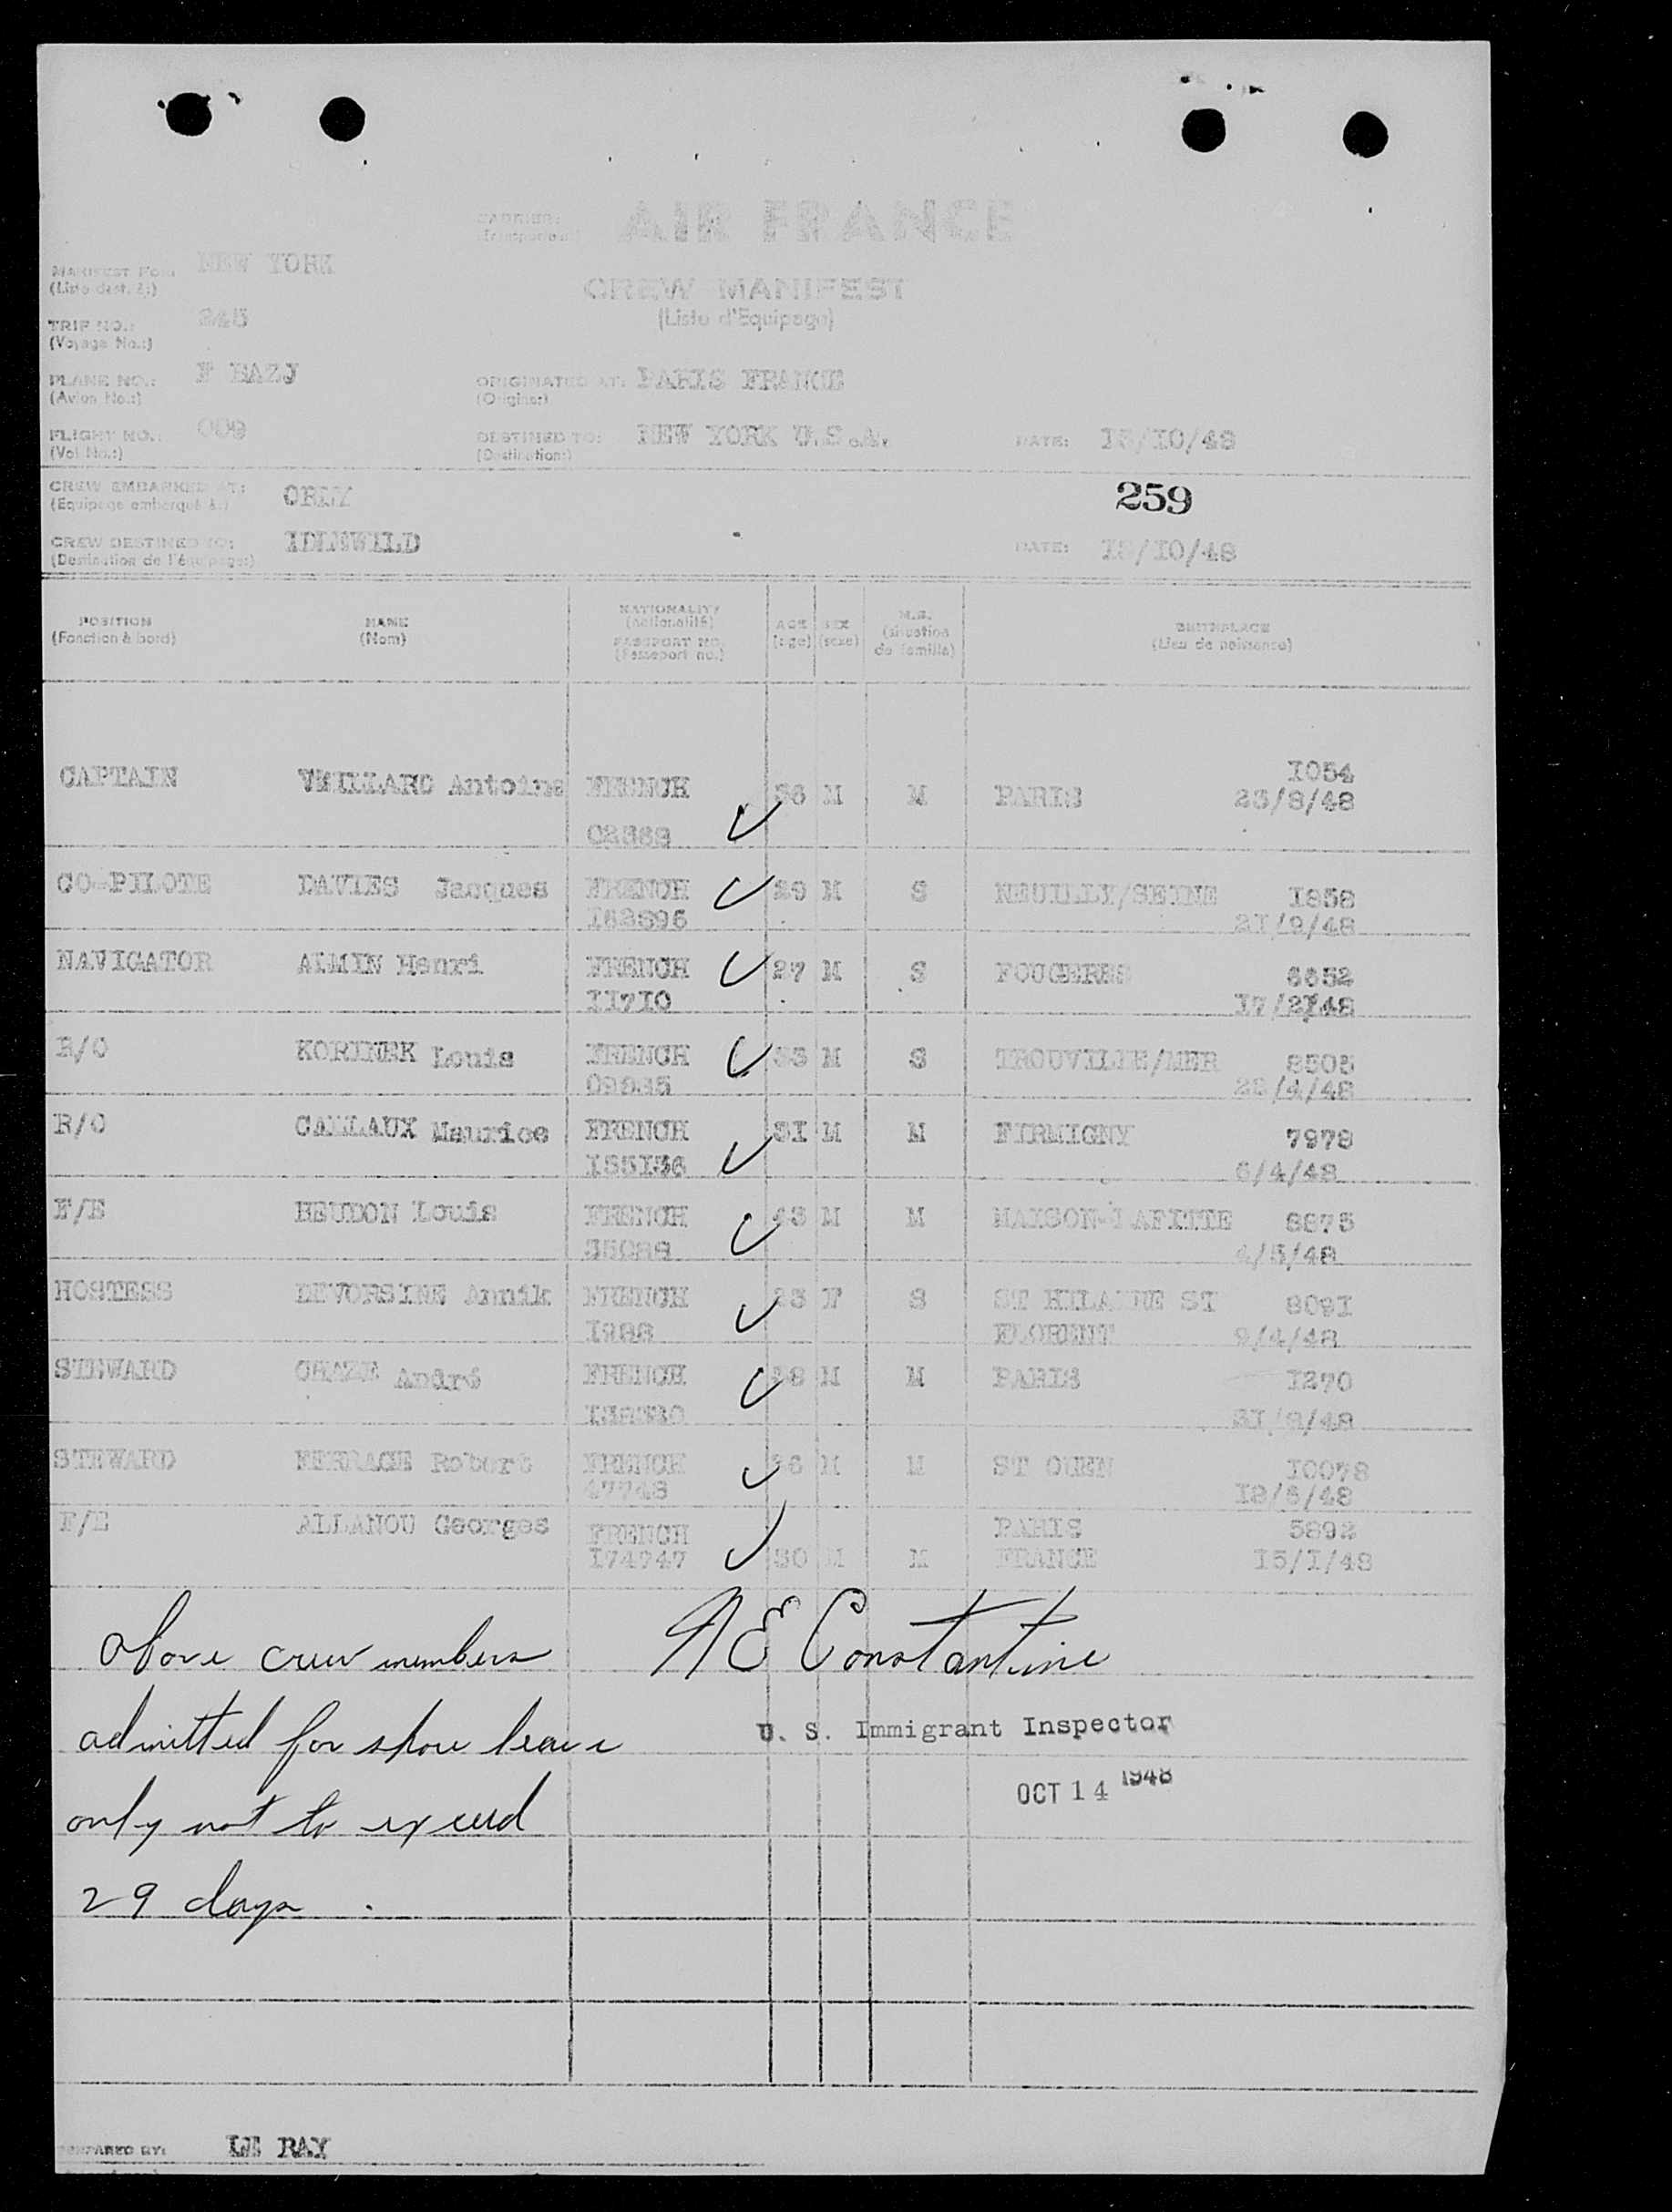 CARRIER: AIR FRANCE
(Transporteur)
MANIFEST FOR: NEW YORK
(Liste dest. à:)
CREW MANIFEST
(Liste d'Equipage)
TRIP NO.: 245
(Voyage No.:)
PLANE NO.: F BAZJ
(Avion No.:)
ORIGINATED AT: PARIS FRANCE
(Origine:)
FLIGHT NO.: 009
(Vol No.:)
DESTINED TO: NEW YORK U.S.A. DATE: 13/10/48
(Destination:)
CREW EMBARKED AT: ORLY
(Equipage embarqué à:)
259
CREW DESTINED TO: IDLEWILD DATE: 13/10/48
(Destination de l'équipage:)
POSITION NAME NATIONALITY AGE SEX M.S. BIRTHPLACE
(Fonction à bord) (Nom) (nationalité) (age) (sexe) (situation de famille) (Lieu de naissance)
PASSPORT NO.
(Passeport no.)
1054
CAPTAIN VEILLARD Antoine FRENCH 36 M M PARIS 23/8/48
CO-PILOTE DAVIES Jacques FRENCH 29 M S NEUILLY/SEINE 1858
21/9/48
NAVIGATOR AIMIN Henri FRENCH 27 M S FOUGERES 6652
11710
R/O KORINEK Louis FRENCH M S TROUVILLE/MER 8505
/4/48
R/O CAILLAUX Maurice FRENCH 31 M M FIRMIGNY 7978
155136 6/4/48
F/E HEUDON Louis FRENCH 43 M M MAISON-LAFITTE 8875
35089 4/5/48
HOSTESS DEVORSINE Annik FRENCH 23 F S ST HILAIRE ST 8091
FLORENT 9/4/48
STEWARD CHAZE André FRENCH M M PARIS 1270
STEWARD FERRACE Robert FRENCH M M ST OUEN 10078
47748
F/E ALLANOU Georges FRENCH PARIS 5892
174747 30 M M FRANCE 15/1/48
Above crew members
N E Constantine
admitted for shore leave
U. S. Immigrant Inspector
only not to exceed
OCT 14 1948
29 days.
PREPARED BY: LE RAY